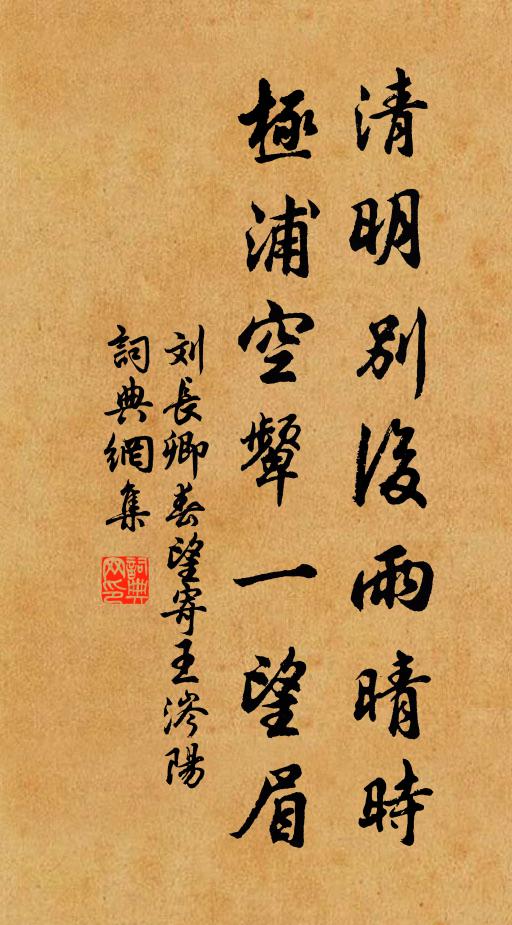 清明別後雨晴時
極浦空顰一望眉
刘長卿春望寄王涔陽
詞典網集
詞典网印